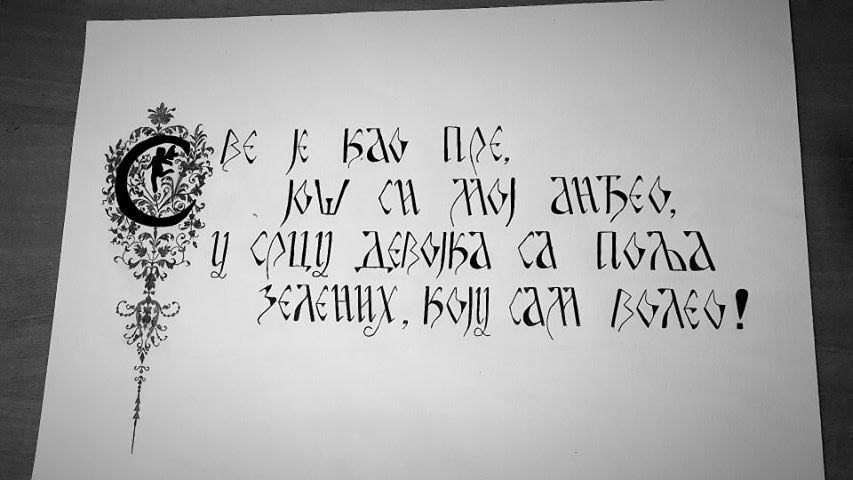 Све је као пре,
још си мој анђео,
у срцу девојка са поља
зелених, коју сам волео!